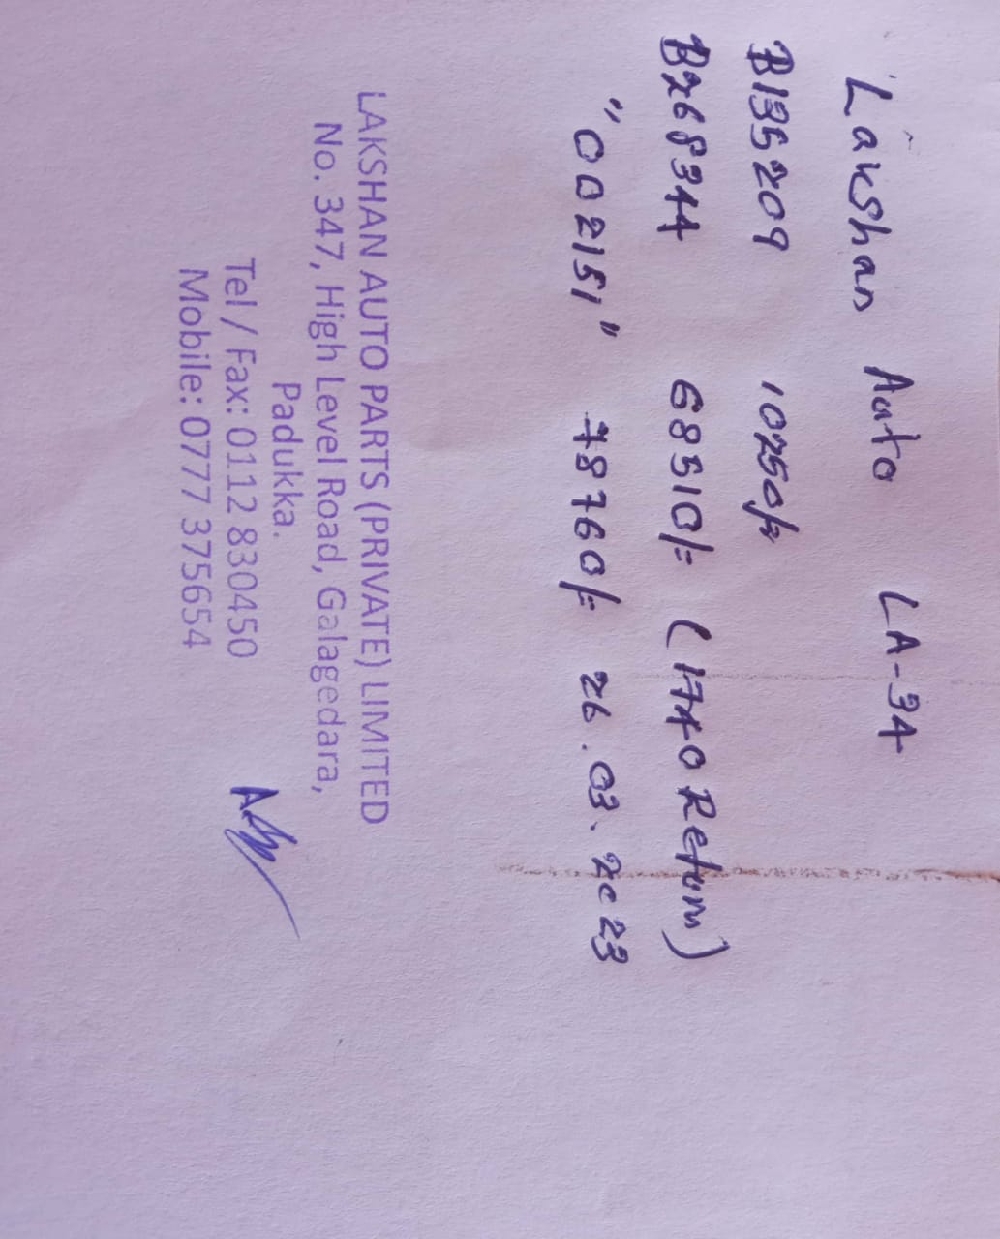 Lakshan Auto LA-34
B135209 10250/=
B268344 68510/= (1740 Return)
"002151" 78760/= 26.03.2023
LAKSHAN AUTO PARTS (PRIVATE) LIMITED
No. 347, High Level Road, Galagedara,
Padukka.
Tel / Fax: 0112 830450
Mobile: 0777 375654